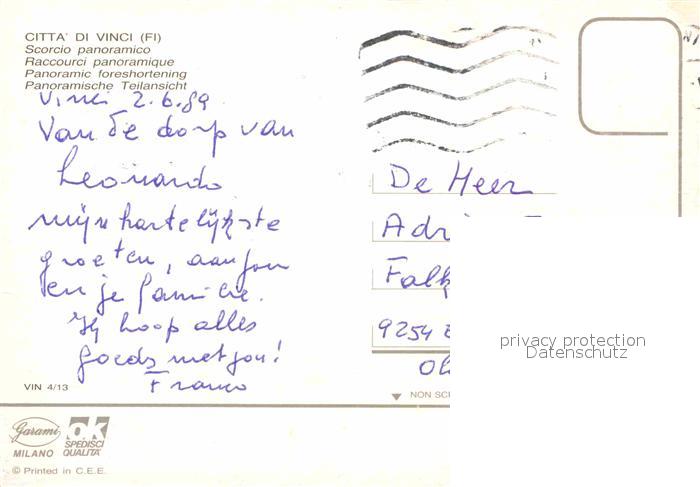 CITTA' DI VINCI (FI)
Scorcio panoramico
Raccourci panoramique
Panoramic foreshortening
Panoramische Teilansicht
Vinci 2.6.89
Van de dorp van
Leonardo
mijn hartelijkste
groeten, aan jou
en je familie.
Ik hoop alles
goeds met jou!
Franco
De Heer
Adri
Falk
9254
privacy protection
Datenschutz
VIN 4/13
NON SC
Garami
MILANO
ok
SPEDISCI
QUALITA'
© Printed in C.E.E.